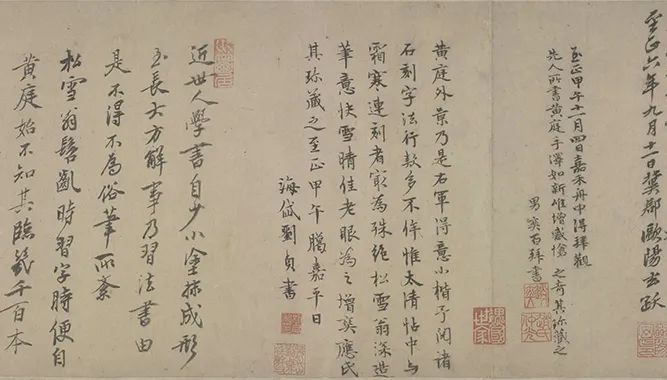 至正六年九月十二日冀郡歐陽玄跋
至正甲午十一月四日嘉禾舟中得拜觀
先人所書黃庭手澤如新惟增感愴
男奕百拜書
之奇其珍藏之
黃庭外景乃是右軍得意小楷予閱諸
石刻字法行款多不侔惟太清帖中与
霜寒連刻者最為殊絕松雪翁深造
華意快雪晴佳老眼為之增爽應氏
其珍藏之至正甲午臘嘉平日
海岱劉貞書
近世人學書自少小塗抹成形
至長大方解事乃習法書由
是不得不為俗筆所紊
松雪翁髫齔時習字時便自
黃庭始不知其臨幾千百本